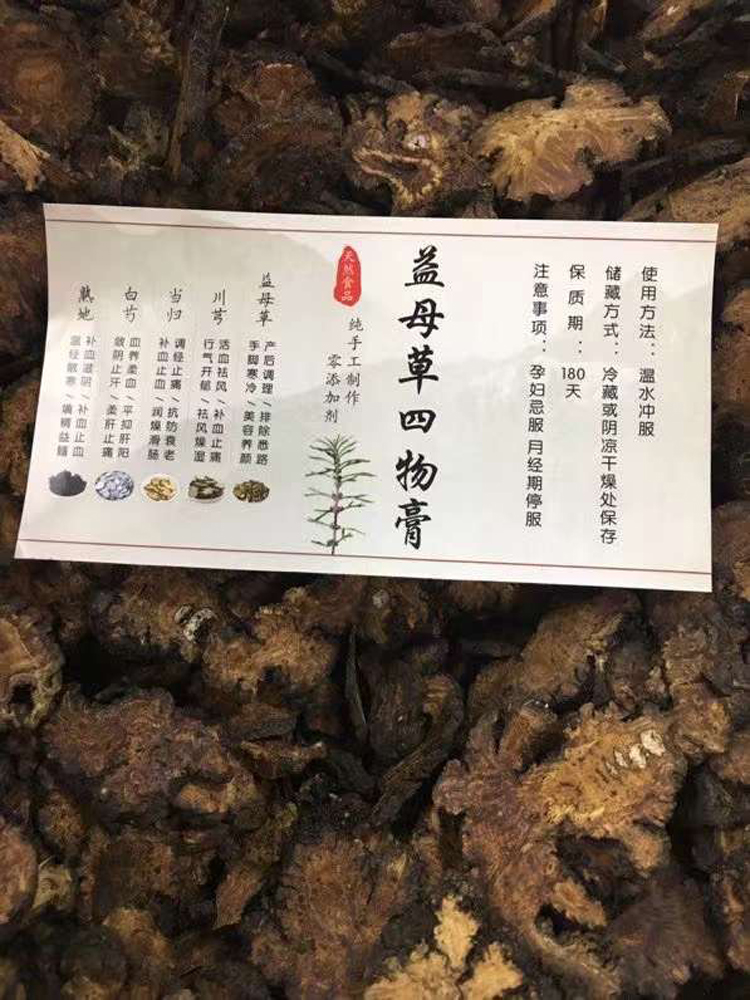 使用方法：温水冲服
储藏方式：冷藏或阴凉干燥处保存
保质期：180天
注意事项：孕妇忌服 月经期停服
益母草四物膏
天然食品
纯手工制作
零添加剂
益母草
产后调理/排除恶露
手脚寒冷/美容养颜
川芎
活血祛风/补血止痛
行气开郁/祛风燥湿
当归
调经止痛/抗防衰老
补血止血/润燥滑肠
白芍
血养柔血/平抑肝阳
敛阴止汗/柔肝止痛
熟地
补血滋阴/补血止血
温经散寒/填精益髓